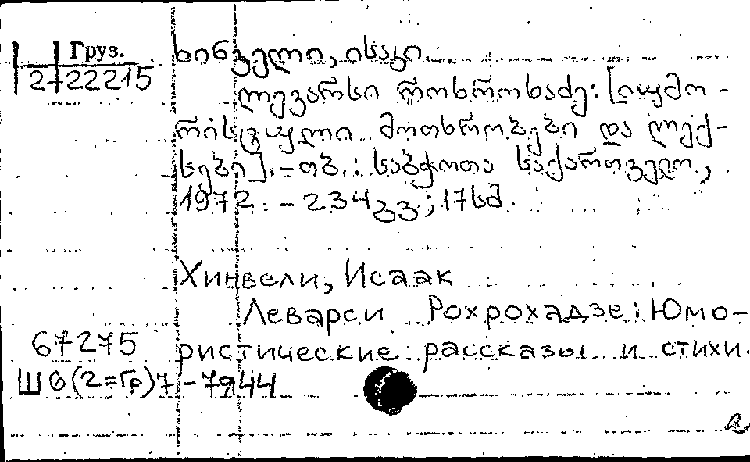 Груз.
2-22215
ხინველი, ისაკი
ლევარსი როხროხაძე: [იუმო-
რისტული მოთხრობები და ლექ-
სები]. - თბ.: საბჭოთა საქართველო,
1972. - 234 გვ; 17 სმ.
Хинвели, Исаак
Леварси Рохрохадзе: Юмо-
67275
ристические рассказы и стихи.
Ш6(2=Гр)7-7944